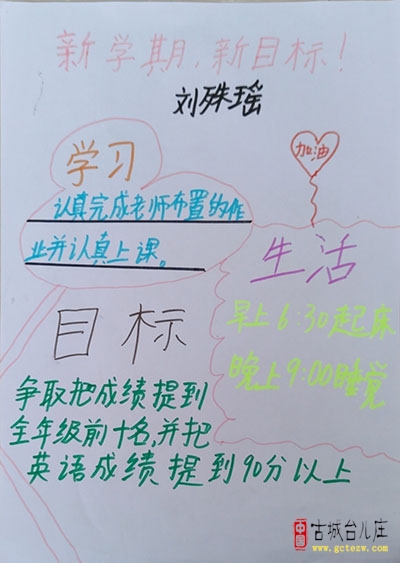 新学期,新目标!
刘殊瑶
加油
学习
认真完成老师布置的作
业并认真上课。
生活
早上6:30起床
晚上9:00睡觉
目标
争取把成绩提到
全年级前十名,并把
英语成绩提到90分以上
中国
古城台儿庄
www.gctezw.com